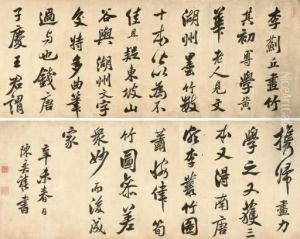 李薊丘畫竹
其初專學黃
華老人見文
湖州墨竹數
十本皆以為不
佳且疑東坡山
谷與湖州文字
交特多曲筆
過与也錢唐
子慶王君謂
攜歸盡力
學之又獲三
本又得南唐
李叢竹圖
蕭悅筍
竹圖參差
眾妙而後成
家
辛未春日
陳奕禧書